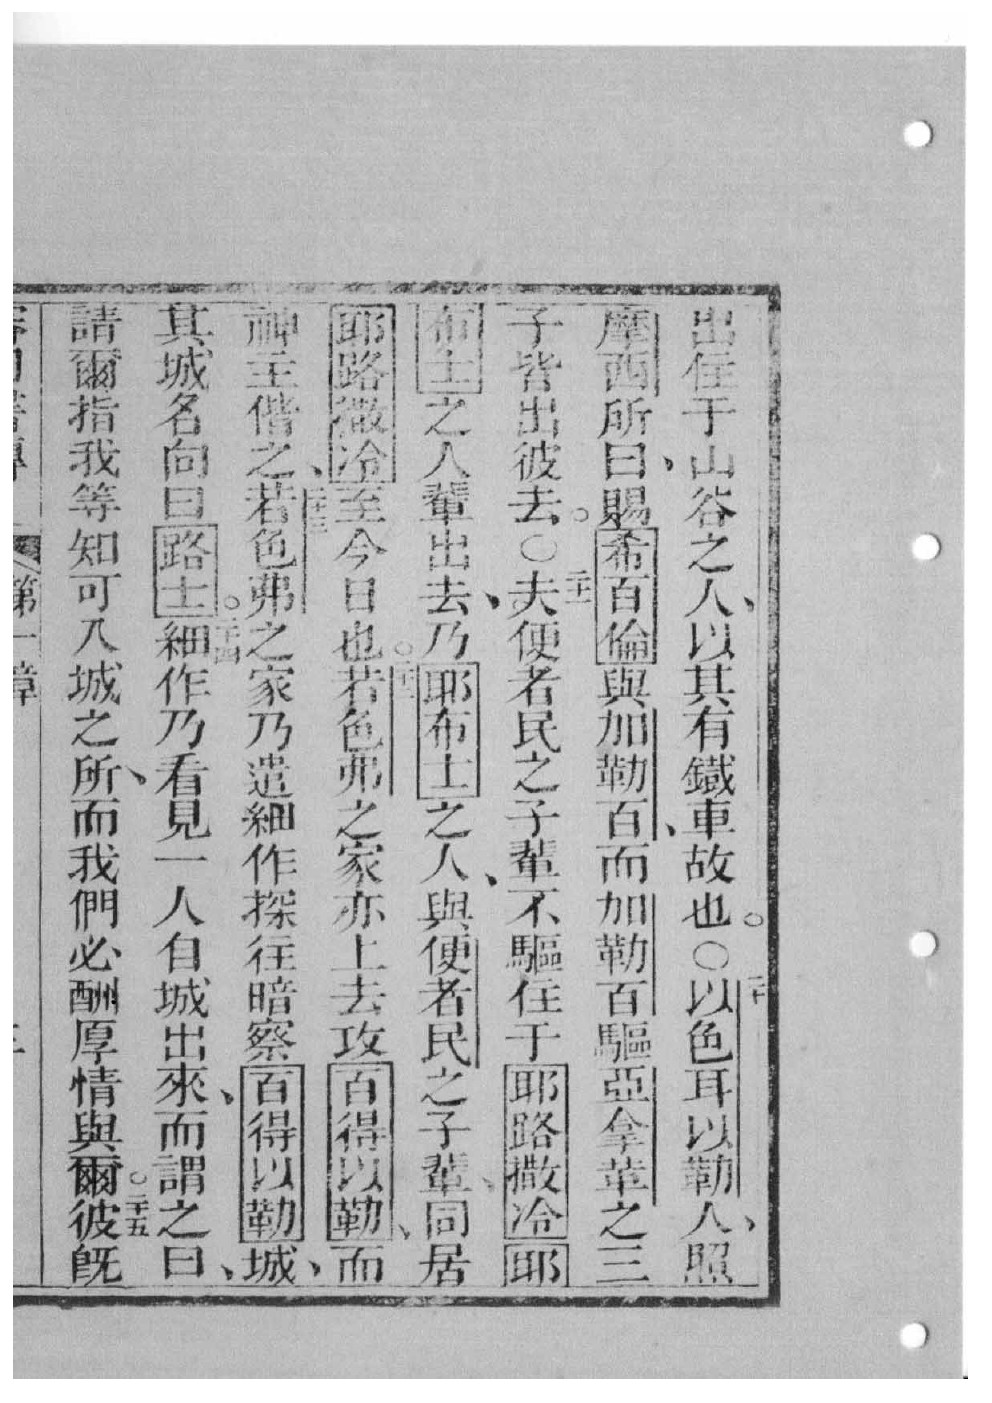 出住于山谷之人、以其有鐵車故也。○二十以色耳以勒人、照
摩西所曰、賜希百倫與加勒百、而加勒百驅亞拿革之三
子皆出彼去。○二十一夫便者民之子輩不驅住于耶路撒冷耶
布士之人輩出去、乃耶布士之人、與便者民之子輩、同居
耶路撒冷至今日也。二十二若色弗之家亦上去攻百得以勒、而
神主偕之、二十三若色弗之家乃遣細作探往暗察百得以勒城、
其城名向曰路士。二十四細作乃看見一人自城出來、而謂之曰、
請爾指我等知可入城之所、而我們必酬厚情與爾。二十五彼旣
第一章